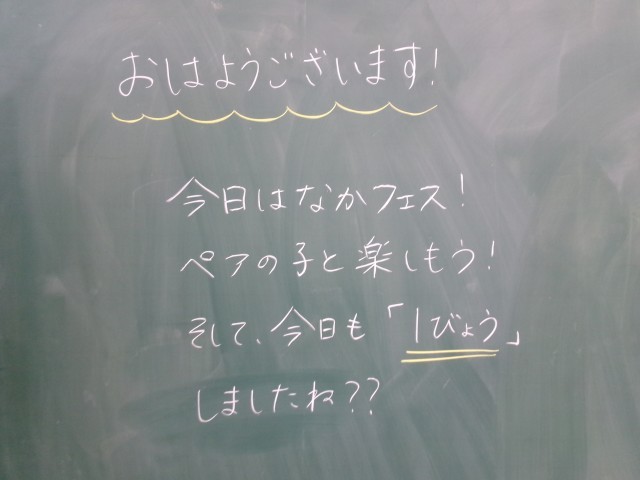 おはようございます!
今日はなかフェス!
ペアの子と楽しもう!
そして、今日も「1びょう」
しましたね??